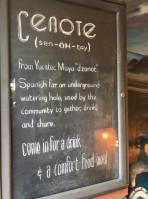 CENOTE
(sen-OH-tay)
from Yucatec Maya "dzonot"
Spanish for an underground
watering hole, used by the
community to gather, drink,
and share.
come in for a drink
& a comfort food meal